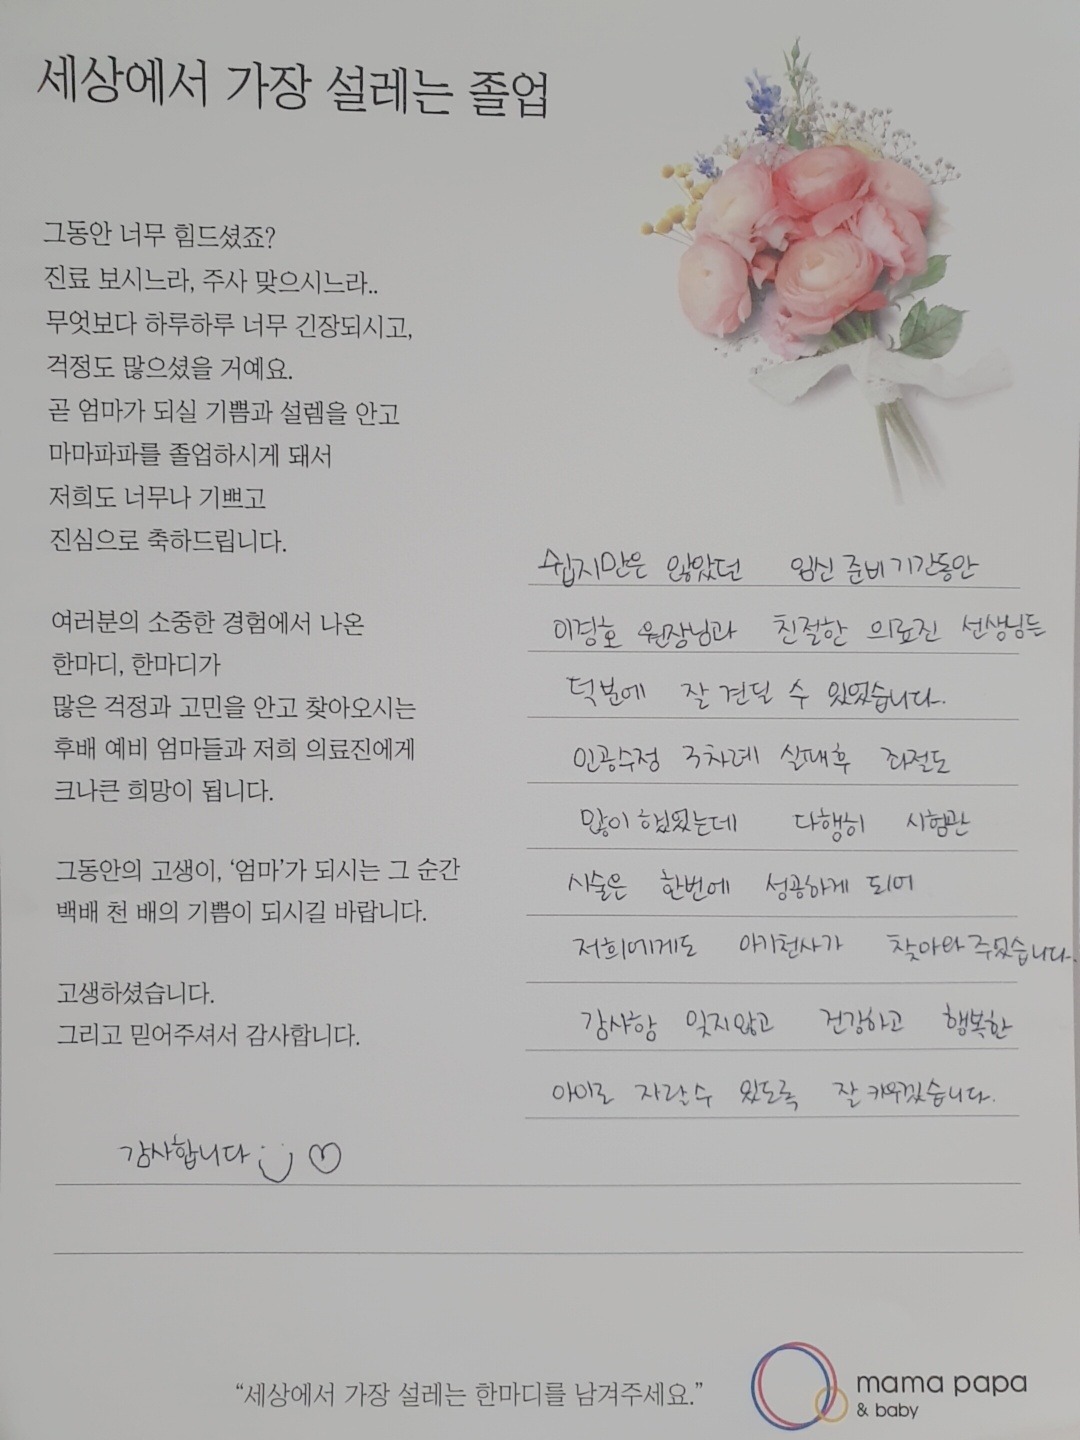 세상에서 가장 설레는 졸업
그동안 너무 힘드셨죠?
진료 보시느라, 주사 맞으시느라..
무엇보다 하루하루 너무 긴장되시고,
걱정도 많으셨을 거예요.
곧 엄마가 되실 기쁨과 설렘을 안고
마마파파를 졸업하시게 돼서
저희도 너무나 기쁘고
진심으로 축하드립니다.
여러분의 소중한 경험에서 나온
한마디, 한마디가
많은 걱정과 고민을 안고 찾아오시는
후배 예비 엄마들과 저희 의료진에게
크나큰 희망이 됩니다.
그동안의 고생이, ‘엄마’가 되시는 그 순간
백배 천 배의 기쁨이 되시길 바랍니다.
고생하셨습니다.
그리고 믿어주셔서 감사합니다.
쉽지만은 않았던 임신 준비 기간동안
이경호 원장님과 친절한 의료진 선생님들
덕분에 잘 견딜 수 있었습니다.
인공수정 3차례 실패후 좌절도
많이 했었는데 다행히 시험관
시술은 한번에 성공하게 되어
저희에게도 아기천사가 찾아와 주었습니다.
감사함 잊지않고 건강하고 행복한
아이로 자랄 수 있도록 잘 키우겠습니다.
감사합니다
“세상에서 가장 설레는 한마디를 남겨주세요.”
mama papa
& baby